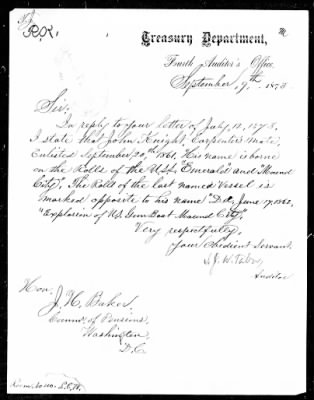 P.R.
Treasury Department,
Fourth Auditor's Office
September 9th, 1873
Sir,
In reply to your letter of July 12, 1873,
I state that John Knight, Carpenter's Mate,
Enlisted September 20th 1861. His name is borne
on the Rolls of the U.S.S. "Emerald" and Mound
City". The Rolls of the last named Vessel is
marked opposite to his name "D.d. June 17, 1862,
"Explosion of U.S. Gun Boat Mound City".
Very respectfully,
Your Obedient Servant
S.J.W. Tabor
Auditor
Hon.
J. H. Baker,
Comms. of Pensions,
Washington
D.C.